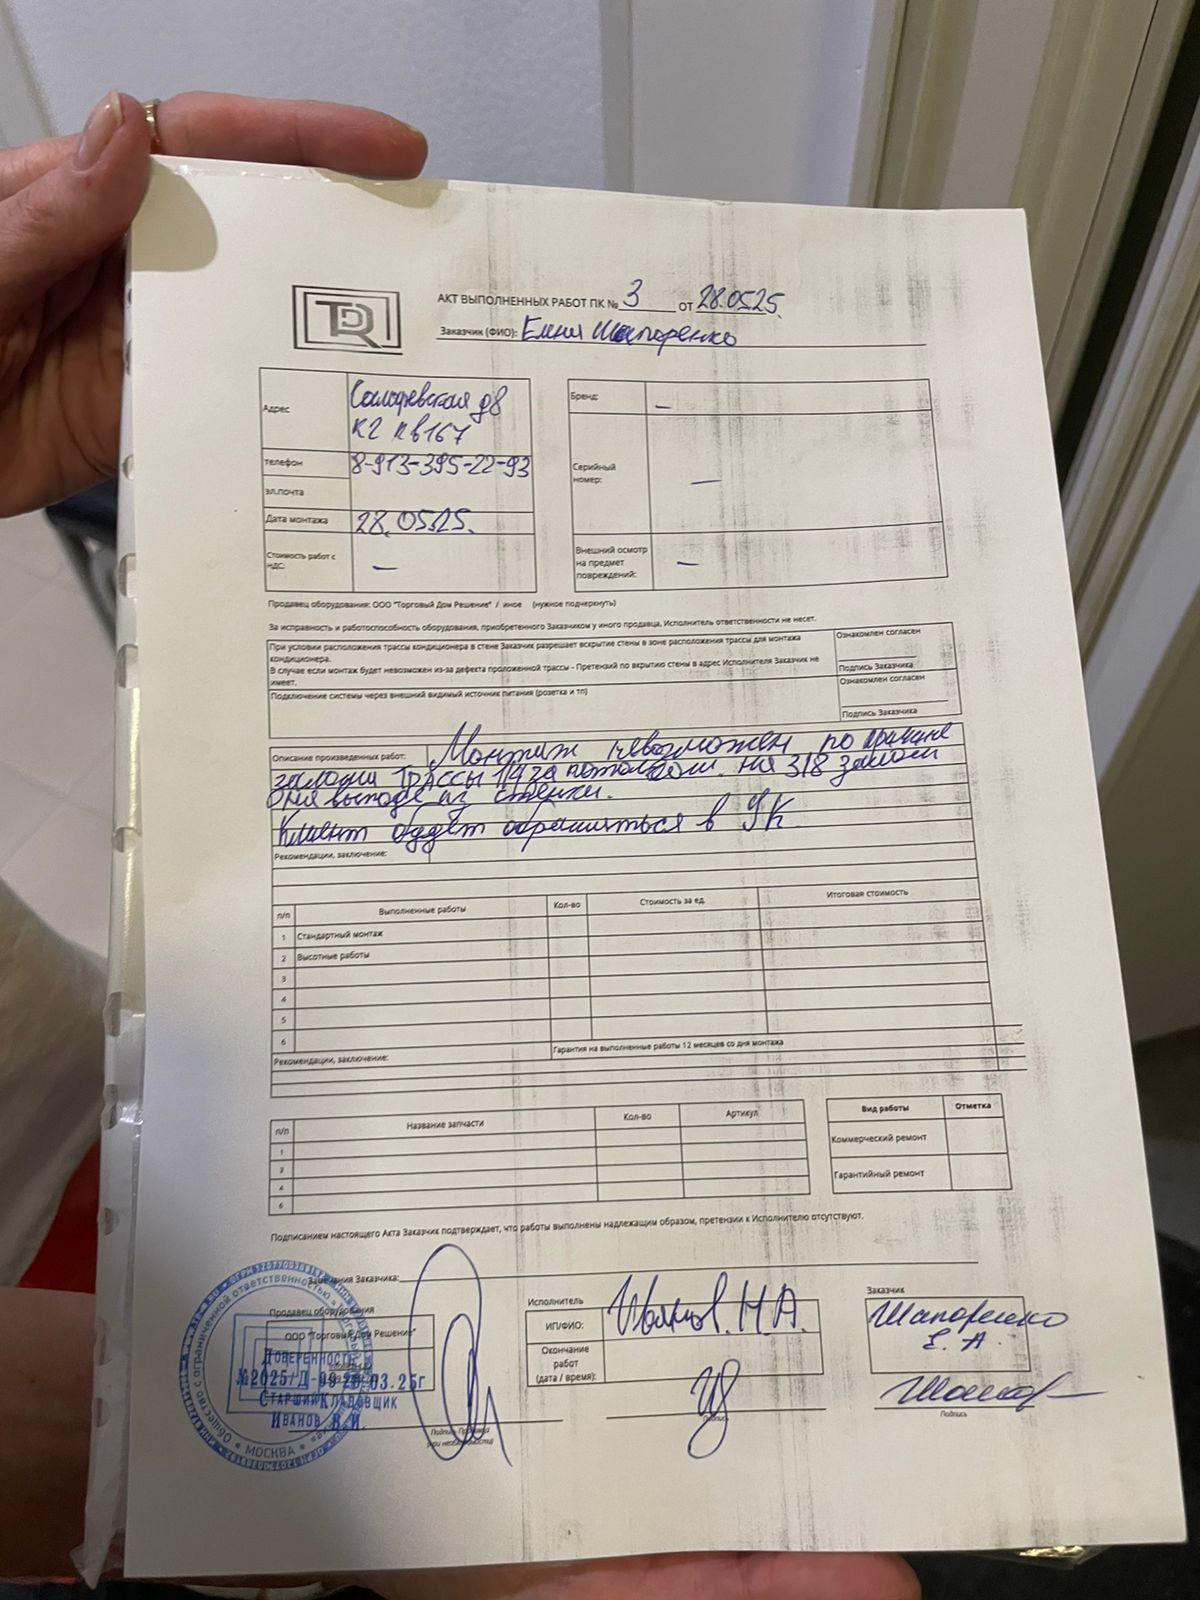 TDR
АКТ ВЫПОЛНЕННЫХ РАБОТ ПК № 3 от 28.05.25.
Заказчик (ФИО): Елена Шапоренко
Адрес
д8
К2 кв167
телефон 8-913-395-22-93
эл.почта
Дата монтажа 28.05.25.
Стоимость работ с НДС: —
Бренд: —
Серийный номер: —
Внешний осмотр на предмет повреждений: —
Продавец оборудования: ООО "Торговый Дом Решение" / иное (нужное подчеркнуть)
За исправность и работоспособность оборудования, приобретенного Заказчиком у иного продавца, Исполнитель ответственности не несет.
При условии расположения трассы кондиционера в стене Заказчик разрешает вскрытие стены в зоне расположения трассы для монтажа
кондиционера.
В случае если монтаж будет невозможен из-за дефекта проложенной трассы - Претензий по вскрытию стены в адрес Исполнителя Заказчик не
имеет.
Ознакомлен согласен
Подпись Заказчика
Подключение системы через внешний видимый источник питания (розетка и тп)
Ознакомлен согласен
Подпись Заказчика
Описание произведенных работ: Монтаж невозможен по причине
трассы 1/4 за потолком. на 3/8
выходе из стенки.
Клиент будет обращаться в УК
Рекомендации, заключение:
п/п Выполненные работы Кол-во Стоимость за ед. Итоговая стоимость
1 Стандартный монтаж
2 Высотные работы
3
4
5
6
Гарантия на выполненные работы 12 месяцев со дня монтажа
Рекомендации, заключение:
п/п Название запчасти Кол-во Артикул
1
3
4
6
Вид работы Отметка
Коммерческий ремонт
Гарантийный ремонт
Подписанием настоящего Акта Заказчик подтверждает, что работы выполнены надлежащим образом, претензии к Исполнителю отсутствуют.
Замечания Заказчика:
Продавец оборудования
ООО "Торговый Дом Решение"
Доверенность
№2025/Д-09 26.03.25г
Старший Кладовщик
Иванов В.И.
Общество с ограниченной ответственностью
МОСКВА
Подпись Продавца
(при необходимости)
Исполнитель
ИП/ФИО: Н.А.
Окончание
работ
(дата / время):
Подпись
Заказчик
Шапоренко
Е. А.
Подпись